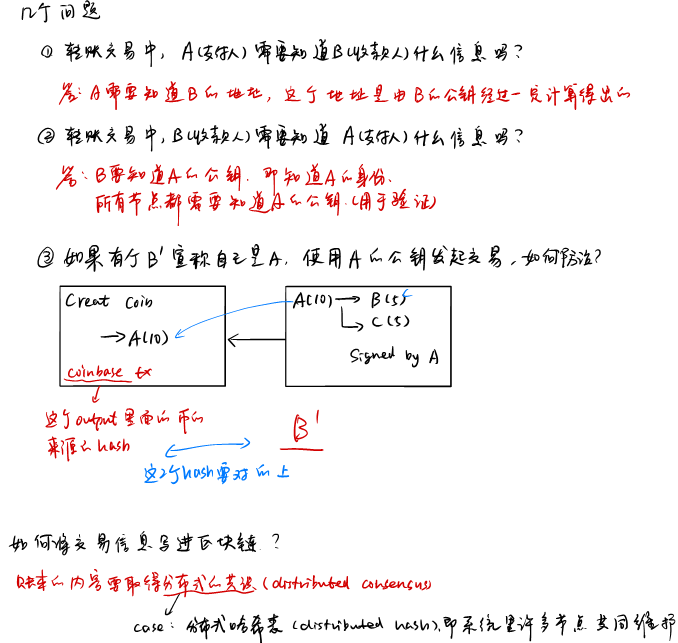 几个问题
① 转账交易中，A(支付人)需要知道B(收款人)什么信息吗？
答：A需要知道B的地址，这个地址是由B的公钥经过一定计算得出的
② 转账交易中，B(收款人)需要知道A(支付人)什么信息吗？
答：B要知道A的公钥，即知道A的身份.
所有节点都需要知道A的公钥.(用于验证)
③ 如果有个B'宣称自己是A，使用A的公钥发起交易，如何防治？
Creat coin
→A(10)
coinbase tx
A(10) → B(5)
→ C(5)
Signed by A
这个output里面的币的
来源的hash
B'
这2个hash要对的上
如何将交易信息写进区块链？
账本的内容要取得分布式的共识(distributed consensus)
case：分布式哈希表(distributed hash)，即系统里许多节点共同维护